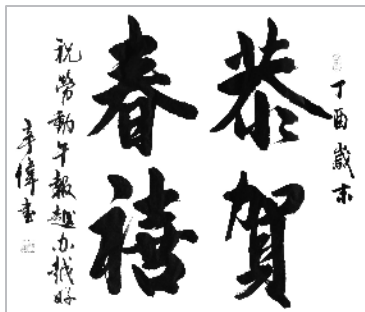 丁酉歲末
恭賀
春禧
祝勞動午報越办越好
辛偉書